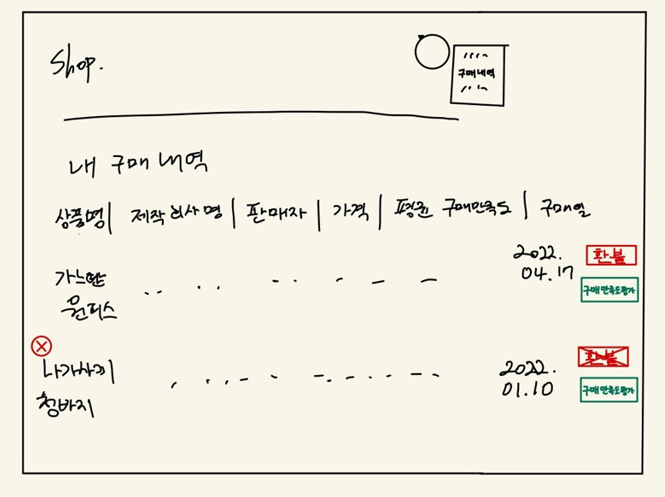 Shop.
구매내역
내 구매내역
상품명 | 제작회사명 | 판매자 | 가격 | 평균 구매만족도 | 구매일
가느딴 원피스
2022. 04.17
환불
구매만족도평가
청바지
2022. 01.10
환불
구매만족도평가